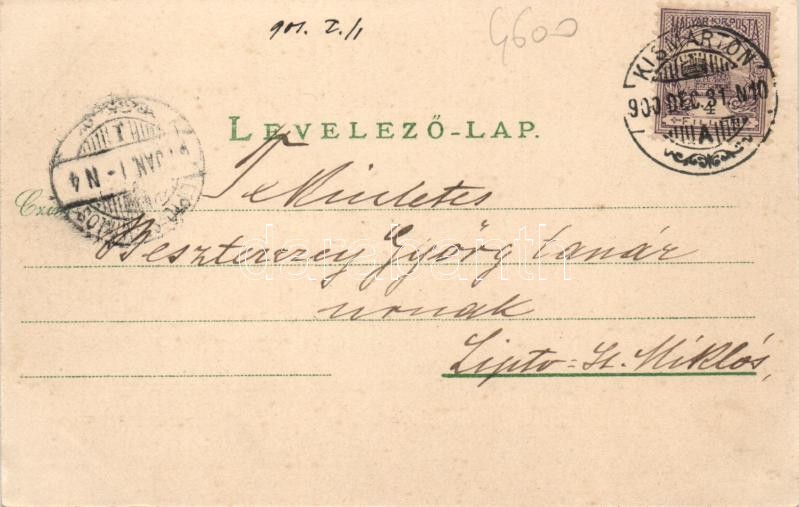 901. I./1
4600
MAGYAR KIR. POSTA
KISMARTON
900 DEC. 31. N10
A
4
FILLÉR
LEVELEZŐ-LAP.
JAN. 1 - N4
Tekintetes
Beszterczey György tanár
urnak
Lipto-Sz. Miklós,
darabanth